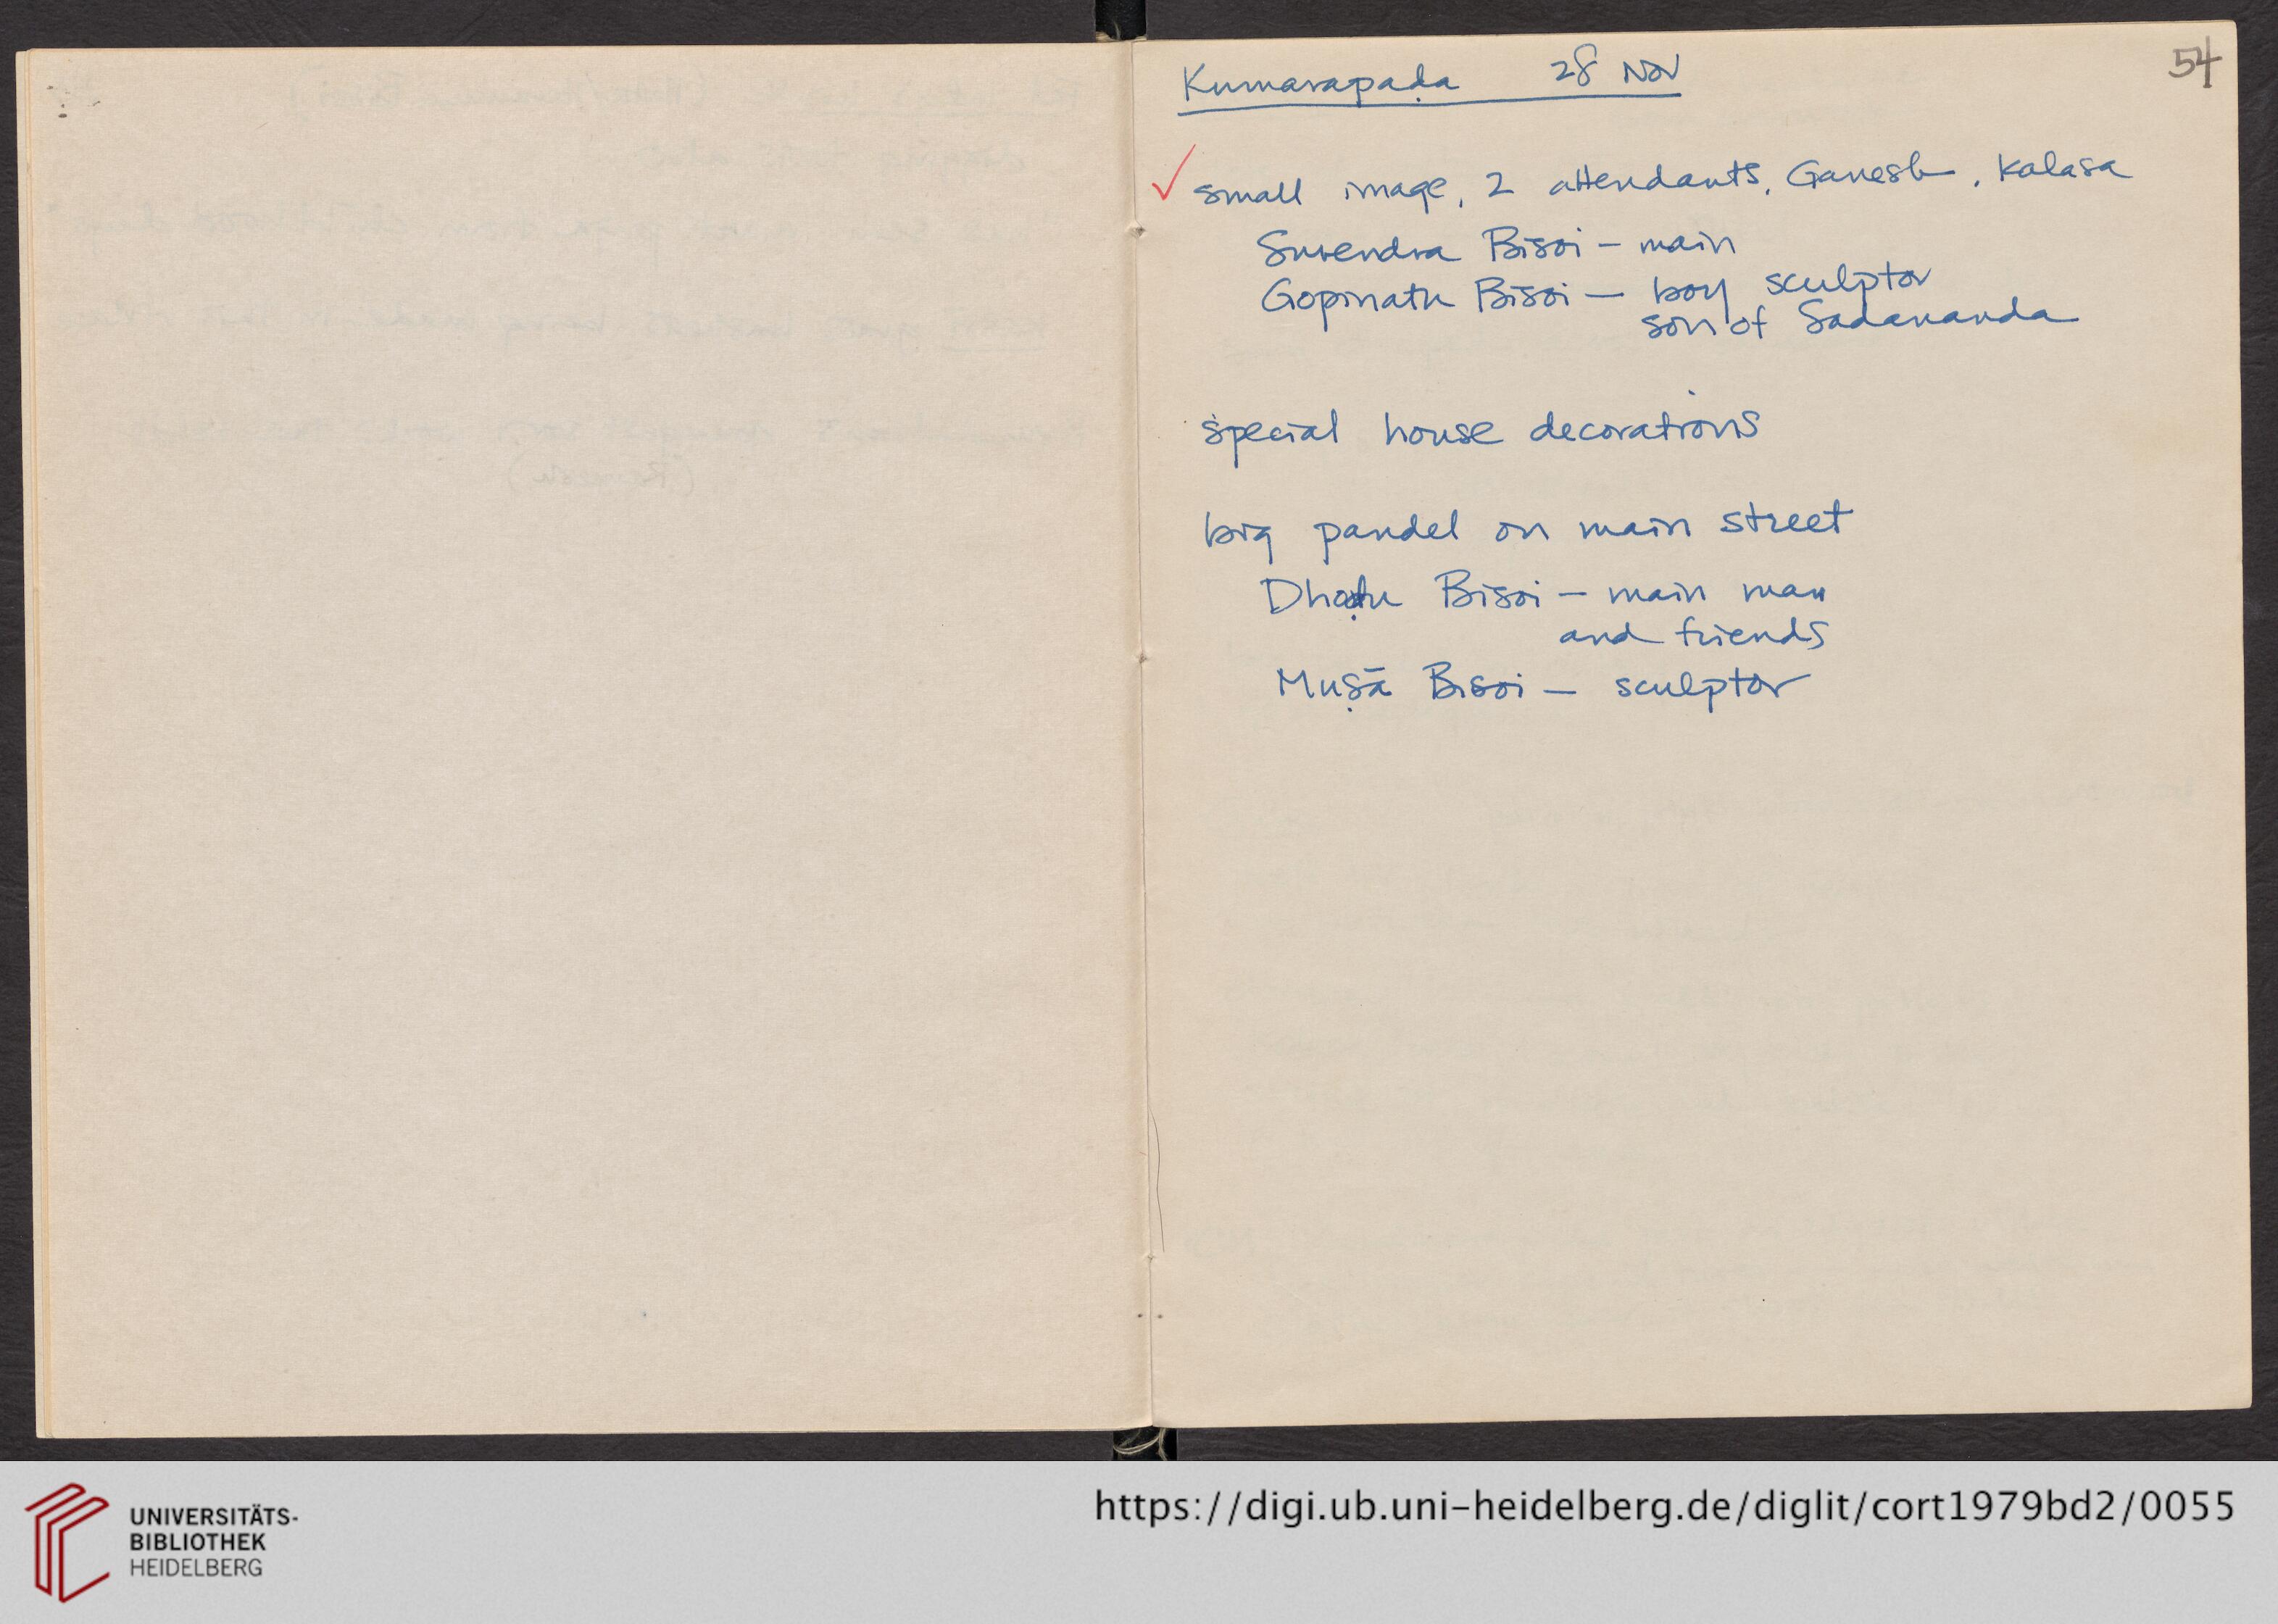 54
Kumarapaḍa 28 Nov
✓ small image, 2 attendants, Ganesh, Kalasa
Surendra Bisoi – main
Gopinath Bisoi – boy sculptor
son of Sadananda
special house decorations
big pandel on main street
Bisoi – main man
and friends
Muṣā Bisoi – sculptor
UNIVERSITÄTS-
BIBLIOTHEK
HEIDELBERG
https://digi.ub.uni-heidelberg.de/diglit/cort1979bd2/0055